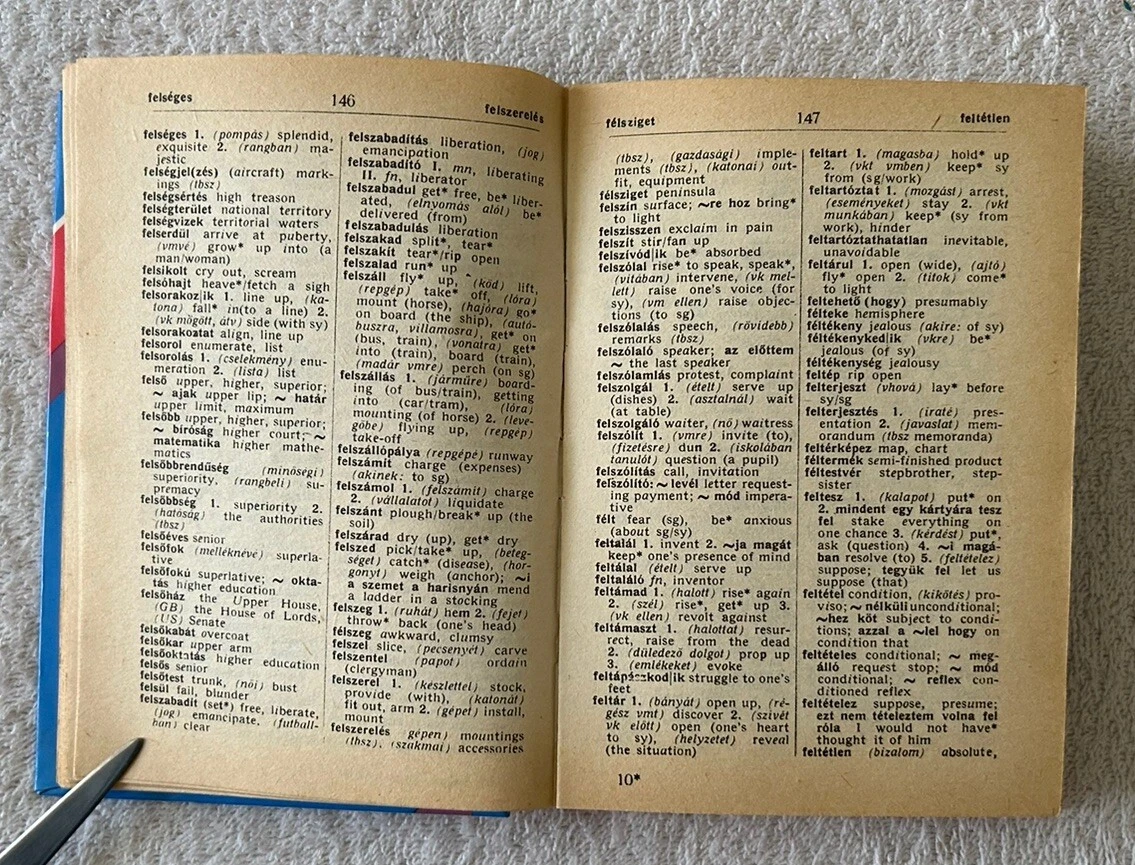 felséges 146 felszerelés
felséges 1. (pompás) splendid,
exquisite 2. (rangban) ma-
jestic
felségjel(zés) (aircraft) mark-
ings (tbsz)
felségsértés high treason
felségterület national territory
felségvizek territorial waters
felserdül arrive at puberty,
(vmvé) grow* up into (a
man/woman)
felsikolt cry out, scream
felsóhajt heave*/fetch a sigh
felsorakoz|ik 1. line up, (ka-
tona) fall* in(to a line) 2.
(vk mögött, átv) side (with sy)
felsorakoztat align, line up
felsorol enumerate, list
felsorolás 1. (cselekmény) enu-
meration 2. (lista) list
felső upper, higher, superior;
~ ajak upper lip; ~ határ
upper limit, maximum
felsőbb upper, higher, superior;
~ bíróság higher court; ~
matematika higher mathe-
matics
felsőbbrendűség (minőségi)
superiority, (rangbeli) su-
premacy
felsőbbség 1. superiority 2.
(hatóság) the authorities
(tbsz)
felsőéves senior
felsőfok (melléknévé) superla-
tive
felsőfokú superlative; ~ okta-
tás higher education
felsőház the Upper House,
(GB) the House of Lords,
(US) Senate
felsőkabát overcoat
felsőkar upper arm
felsőoktatás higher education
felsős senior
felsőtest trunk, (női) bust
felsül fail, blunder
felszabadít (set*) free, liberate,
(jog) emancipate, (futball-
ban) clear
felszabadítás liberation, (jog)
emancipation
felszabadító I. mn, liberating
II. fn, liberator
felszabadul get* free, be* liber-
ated, (elnyomás alól) be*
delivered (from)
felszabadulás liberation
felszakad split*, tear*
felszakít tear*/rip open
felszalad run* up
felszáll fly* up, (köd) lift,
(repgép) take* off, (lóra)
mount (horse), (hajóra) go*
on board (the ship), (autó-
buszra, villamosra), get* on
(bus, train), (vonatra) get*
into (train), board (train),
(madár vmre) perch (on sg)
felszállás 1. (járműre) board-
ing (of bus/train), getting
into (car/tram), (lóra)
mounting (of horse) 2. (leve-
gőbe) flying up, (repgép)
take-off
felszállópálya (repgépé) runway
felszámít charge (expenses)
(akinek: to sg)
felszámol 1. (felszámít) charge
2. (vállalatot) liquidate
felszánt plough/break* up (the
soil)
felszárad dry (up), get* dry
felszed pick/take* up, (beteg-
séget) catch* (disease), (hor-
gonyt) weigh (anchor); ~i
a szemet a harisnyán mend
a ladder in a stocking
felszeg 1. (ruhát) hem 2. (fejet)
throw* back (one's head)
félszeg awkward, clumsy
felszel slice, (pecsenyét) carve
felszentel (papot) ordain
(clergyman)
felszerel 1. (készlettel) stock,
provide (with), (katonát)
fit out, arm 2. (gépet) install,
mount
felszerelés gépen) mountings
(tbsz), (szakmai) accessories
félsziget 147 feltétlen
(tbsz), (gazdasági) imple-
ments (tbsz), (katonai) out-
fit, equipment
félsziget peninsula
felszín surface; ~re hoz bring*
to light
felszisszen exclaim in pain
felszít stir/fan up
felszívód|ik be* absorbed
felszólal rise* to speak, speak*,
(vitában) intervene, (vk mel-
lett) raise one's voice (for
sy), (vm ellen) raise objec-
tions (to sg)
felszólalás speech, (rövidebb)
remarks (tbsz)
felszólaló speaker; az előttem
~ the last speaker
felszólamlás protest, complaint
felszolgál 1. (ételt) serve up
(dishes) 2. (asztalnál) wait
(at table)
felszolgáló waiter, (nő) waitress
felszólít 1. (vmre) invite (to),
(fizetésre) dun 2. (iskolában
tanulót) question (a pupil)
felszólítás call, invitation
felszólító: ~ levél letter request-
ing payment; ~ mód impera-
tive
félt fear (sg), be* anxious
(about sg/sy)
feltalál 1. invent 2. ~ja magát
keep* one's presence of mind
feltálal (ételt) serve up
feltaláló fn, inventor
feltámad 1. (halott) rise* again
2. (szél) rise*, get* up 3.
(vk ellen) revolt against
feltámaszt 1. (halottat) resur-
rect, raise from the dead
2. (düledező dolgot) prop up
3. (emlékeket) evoke
feltápászkod|ik struggle to one's
feet
feltár 1. (bányát) open up, (ré-
gész vmt) discover 2. (szívét
vk előtt) open (one's heart
to sy), (helyzetet) reveal
(the situation)
feltart 1. (magasba) hold* up
2. (vk vmben) keep* sy
from (sg/work)
feltartóztat 1. (mozgást) arrest,
(eseményeket) stay 2. (vkt
munkában) keep* (sy from
work), hinder
feltartóztathatatlan inevitable,
unavoidable
feltárul 1. open (wide), (ajtó)
fly* open 2. (titok) come*
to light
feltehető (hogy) presumably
félteke hemisphere
féltékeny jealous (akire: of sy)
féltékenyked|ik (vkre) be*
jealous (of sy)
féltékenység jealousy
feltép rip open
felterjeszt (vhová) lay* before
sy/sg
felterjesztés 1. (iraté) pres-
entation 2. (javaslat) mem-
orandum (tbsz memoranda)
feltérképez map, chart
féltermék semi-finished product
féltestvér stepbrother, step-
sister
feltesz 1. (kalapot) put* on
2. mindent egy kártyára tesz
fel stake everything on
one chance 3. (kérdést) put*,
ask (question) 4. ~i magá-
ban resolve (to) 5. (feltételez)
suppose; tegyük fel let us
suppose (that)
feltétel condition, (kikötés) pro-
viso; ~ nélküli unconditional;
~hez köt subject to condi-
tions; azzal a ~lel hogy on
condition that
feltételes conditional; ~ meg-
álló request stop; ~ mód
conditional; ~ reflex con-
ditioned reflex
feltételez suppose, presume;
ezt nem tételeztem volna fel
róla I would not have*
thought it of him
feltétlen (bizalom) absolute,
10*